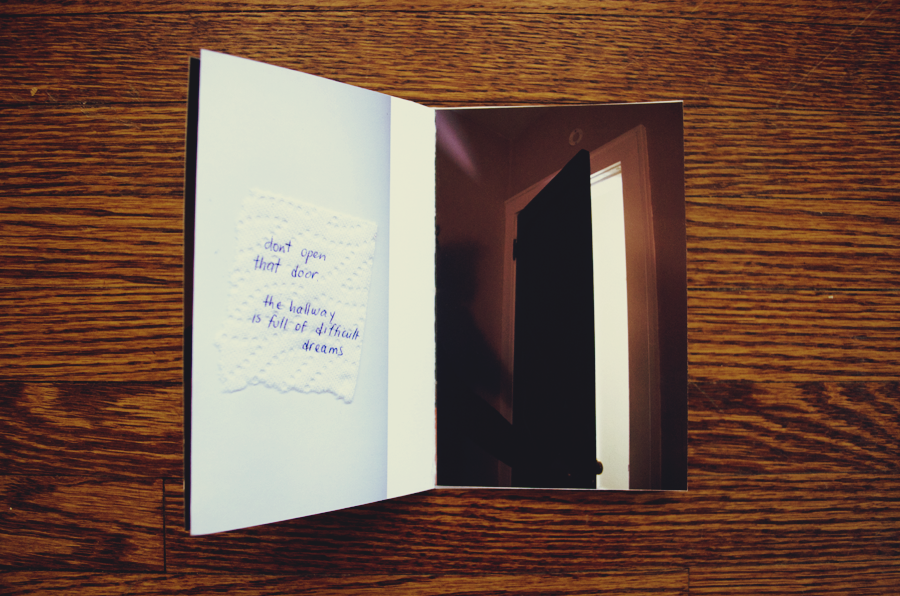 dont open
that door
the hallway
is full of difficult
dreams